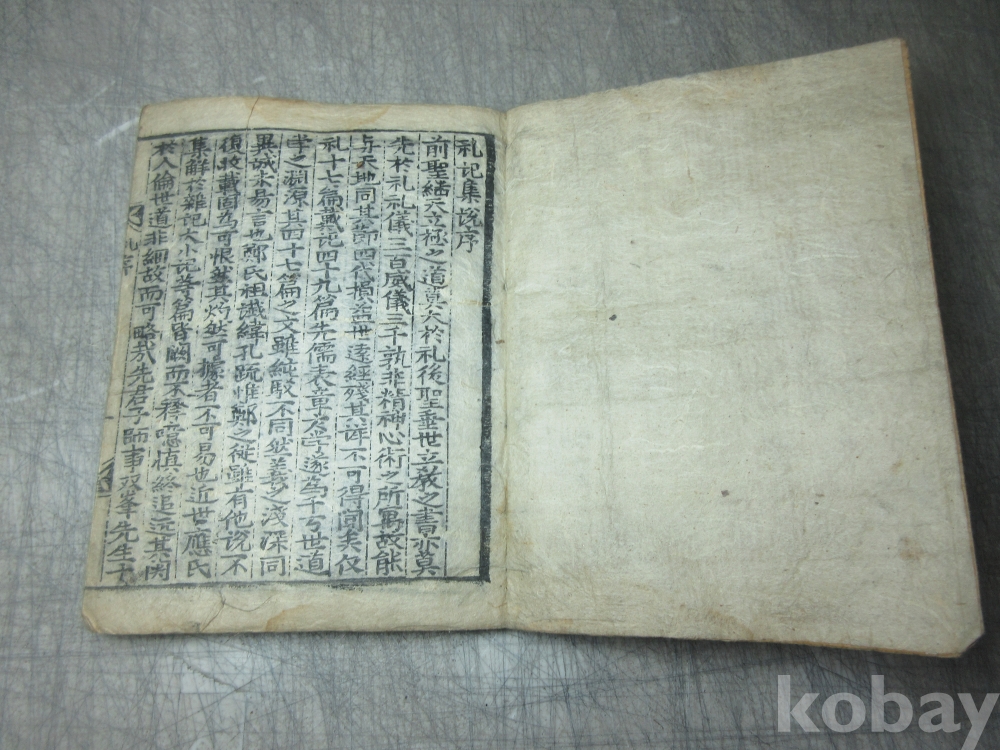 礼记集說序
前聖継天立極之道莫大於礼後聖垂世立教之書亦莫
先於礼礼儀三百威儀三千孰非精神心術之所寓故能
与天地同其節四代損益世遠經殘其詳不可得聞矣仅
礼十七篇戴记四十九篇先儒表章学遂為千万世道
学之淵源其四十七篇之文雖純駁不同然義之淺深同
異誠未易言也鄭氏祖讖緯孔疏惟鄭之從雖有他說不
復收載固為可恨然其灼然可據者不可易也近世應氏
集解於雜記大小記等篇皆闕而不釋噫慎終追远其関
於人倫世道非細故而可略哉先君子師事双峯先生十
礼序
kobay